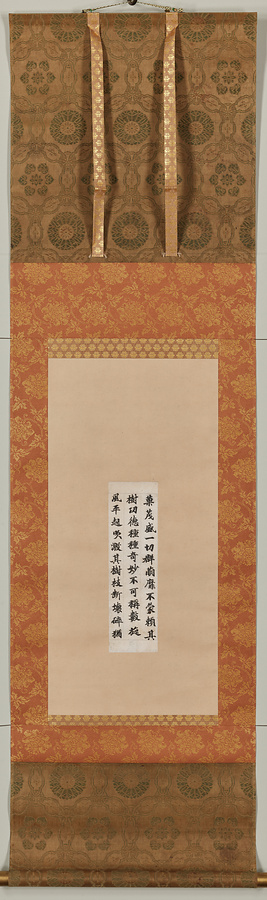 藥茂盛一切群萠靡不蒙賴其
樹功德種種奇妙不可稱數旋
風卒起吹激其樹枝斯壞碎猶